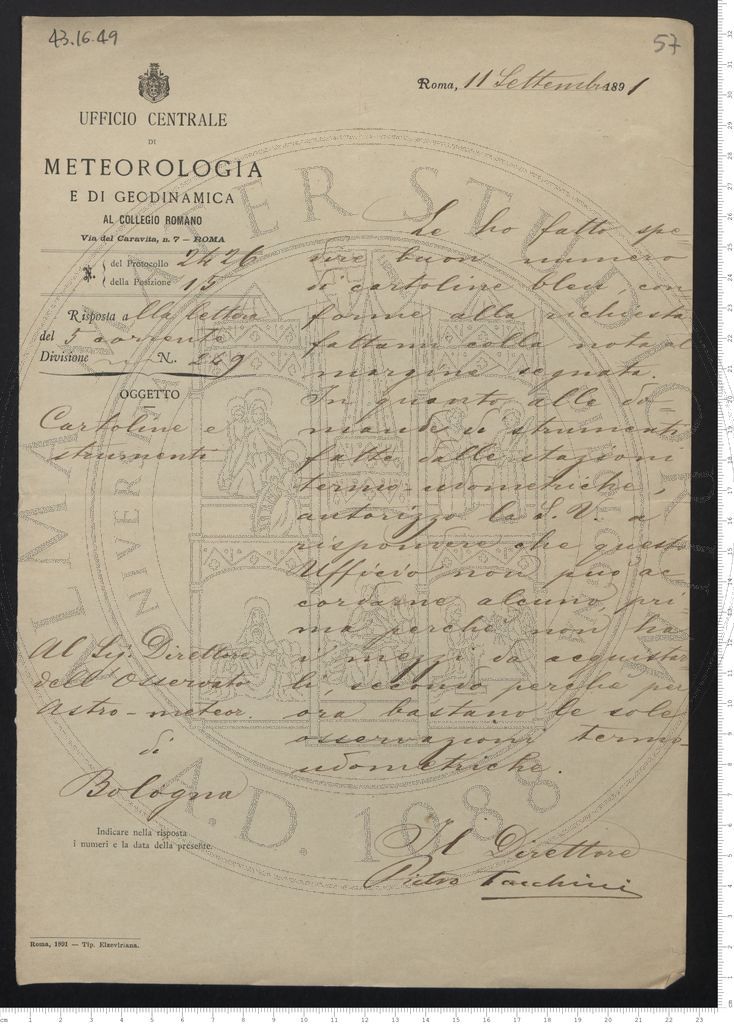 43.16.49
57
Roma, 11 Settembre 1891
UFFICIO CENTRALE
DI
METEOROLOGIA
E DI GEODINAMICA
AL COLLEGIO ROMANO
Via del Caravita, n. 7 – ROMA
N. del Protocollo 2426
della Posizione 15
Risposta alla lettera
del 5 corrente
Divisione N. 249
OGGETTO
Cartoline e
strumenti
Le ho fatto spe-
dire buon numero
di cartoline bleu, con-
forme alla richiesta
fattami colla nota al
margine segnata.
In quanto alle do-
mande di strumenti
fatte dalle stazioni
termo-udometriche,
autorizzo la S. V. a
rispondere che questo
Ufficio non può ac-
cordarne alcuno, pri-
ma perché non ha
i mezzi da acquistar-
li, secondo perché per
ora bastano le sole
osservazioni termo-
udometriche.
Al Sig. Direttore
dell'Osservato
Astro-meteor.
di
Bologna
Indicare nella risposta
i numeri e la data della presente.
Il Direttore
Pietro Tacchini
Roma, 1891 — Tip. Elzeviriana.
ALMA MATER STUDIORUM
A.D. 1088